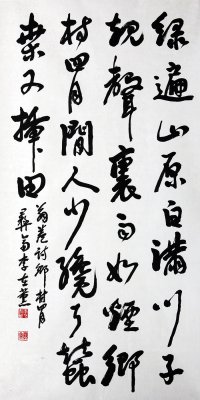 綠遍山原白滿川子
規聲裏雨如煙鄉
村四月閒人少纔了蠶
桑又插田
翁卷詩鄉村四月